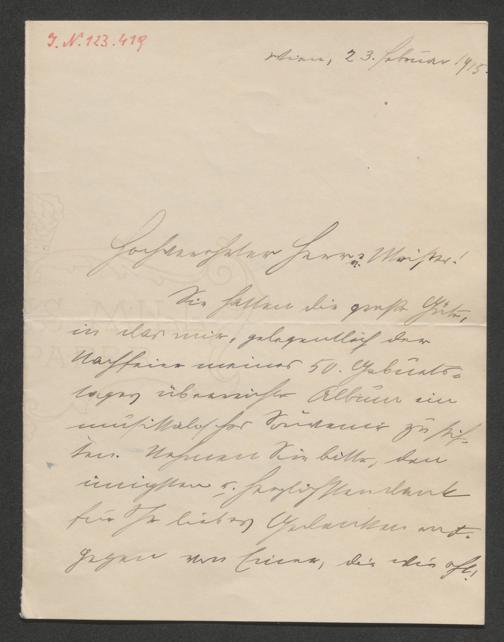 J. N. 123.419
Wien, 23. Februar 1915.
Hochverehrter Herr u. Meister!
Sie hatten die große Güte,
in das mir, gelegentlich der
Nachfeier meines 50. Geburts-
tages überreichte Album ein
musikalisches Souvenir zu stif-
ten. Nehmen Sie bitte, den
innigsten u. herzlichsten Dank
für Ihr liebes Gedenken ent-
gegen von Einer, die wie oft!